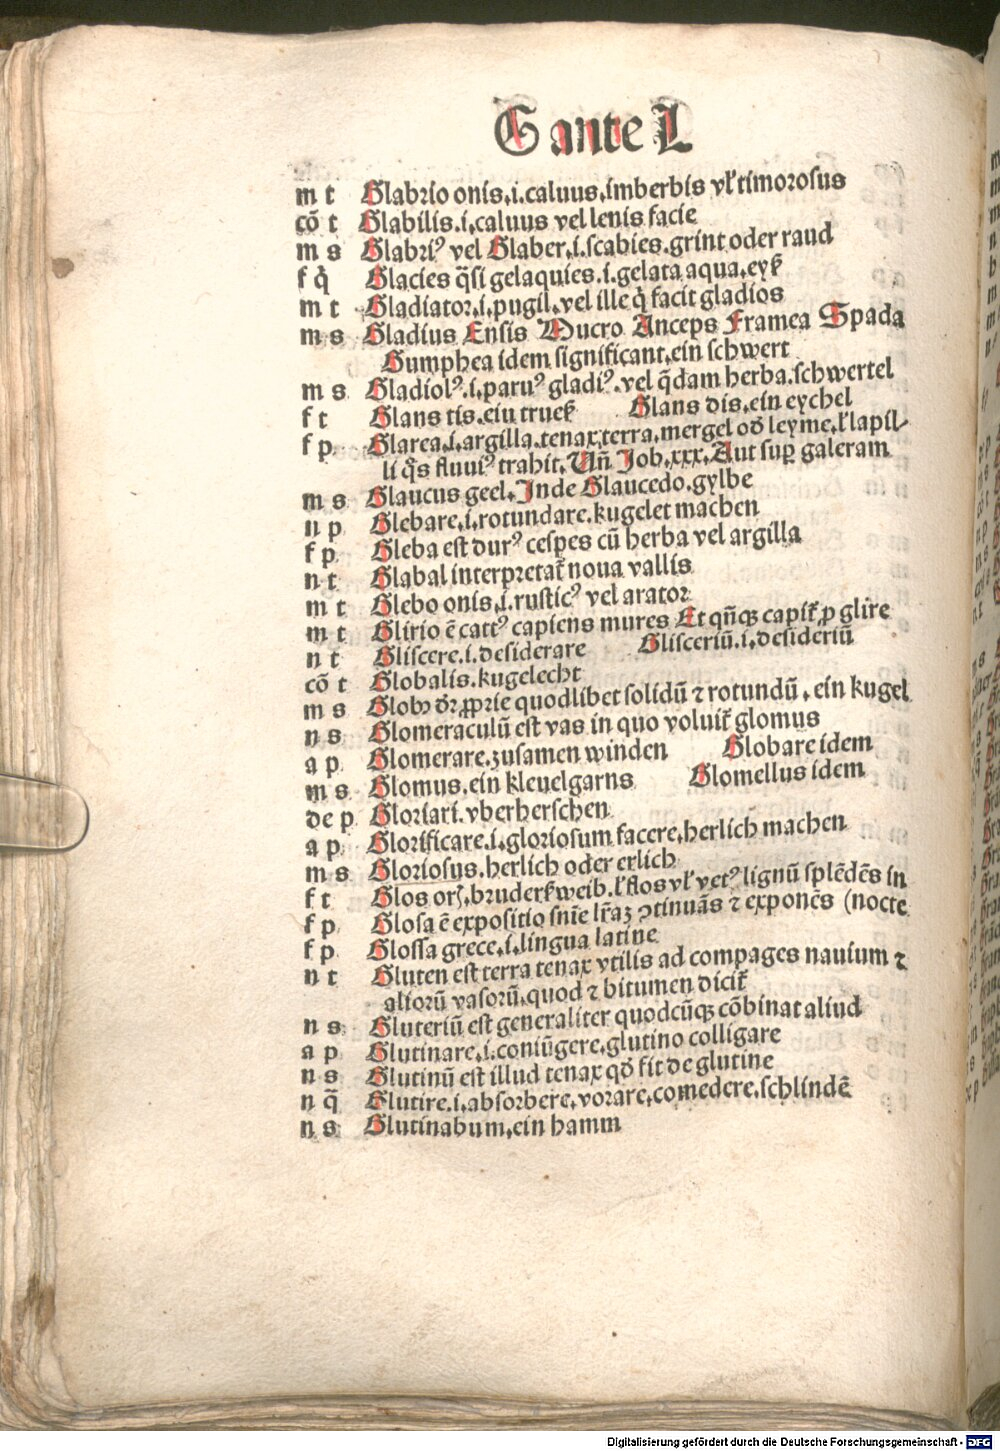 G ante L
m t Glabrio onis.i.caluus.imberbis vł timorosus
cō t Glabilis.i.caluus vel lenis facie
m s Glabriꝰ vel Glaber.i.scabies.grint oder raud
f q̇ Glacies q̄si gelaquies.i.gelata aqua.eyß
m t Gladiator.i.pugil.vel ille q̇ facit gladios
m s Gladius Ensis Mucro Anceps Framea Spada
Gumphea idem significant.ein schwert
m s Gladiolꝰ.i.paruꝰ gladiꝰ.vel q̄dam herba.schwertel
f t Glans tis.ein trueß Glans dis.ein eychel
f p Glarea.i.argilla.tenax terra.mergel oď leyme.ł lapil⸗
li q̄s fluuiꝰ trahit.Vñ Job.xxx.Aut suꝑ galeram
m s Glaucus geel.Inde Glaucedo.gylbe
n p Glebare.i.rotundare.kugelet machen
f p Gleba est durꝰ cespes cū herba vel argilla
n t Glabal interpretat᷑ noua vallis
m t Glebo onis.i.rusticꝰ vel arator
m t Glirio ē cattꝰ capiens mures Et qn̄qꝫ capit᷑ ꝓ glire
n t Gliscere.i.desiderare Glisceriū.i.desideriū
cō t Globalis.kugelecht
m s Globꝰ dr̄ ꝓprie quodlibet solidū ⁊ rotundū.ein kugel
n s Glomeraculū est vas in quo voluit᷑ glomus
a p Glomerare.zusamen winden Globare idem
m s Glomus.ein kleuelgarns Glomellus idem
de p Gloriari.vberherschen
a p Glorificare.i.gloriosum facere.herlich machen
m s Gloriosus.herlich oder erlich
f t Glos orꝭ.bruderß weib.ł flos vł vetꝰ lignū splēdēs in
f p Glosa ē expositio snīe lr̄aꝫ ꝯtinuās ⁊ exponēs (nocte
f p Glossa grece.i.lingua latine
n t Gluten est terra tenax vtilis ad compages nauium ⁊
aliorū vasorū.quod ⁊ bitumen dicit᷑
n s Gluteriū est generaliter quodcūqꝫ cōbinat aliud
a p Glutinare.i.coniūgere.glutino colligare
n s Glutinū est illud tenax qď fit de glutine
n q̄ Glutire.i.absorbere.vorare.comedere.schlindē
n s Glutinabum.ein hamm
Digitalisierung gefördert durch die Deutsche Forschungsgemeinschaft - DFG